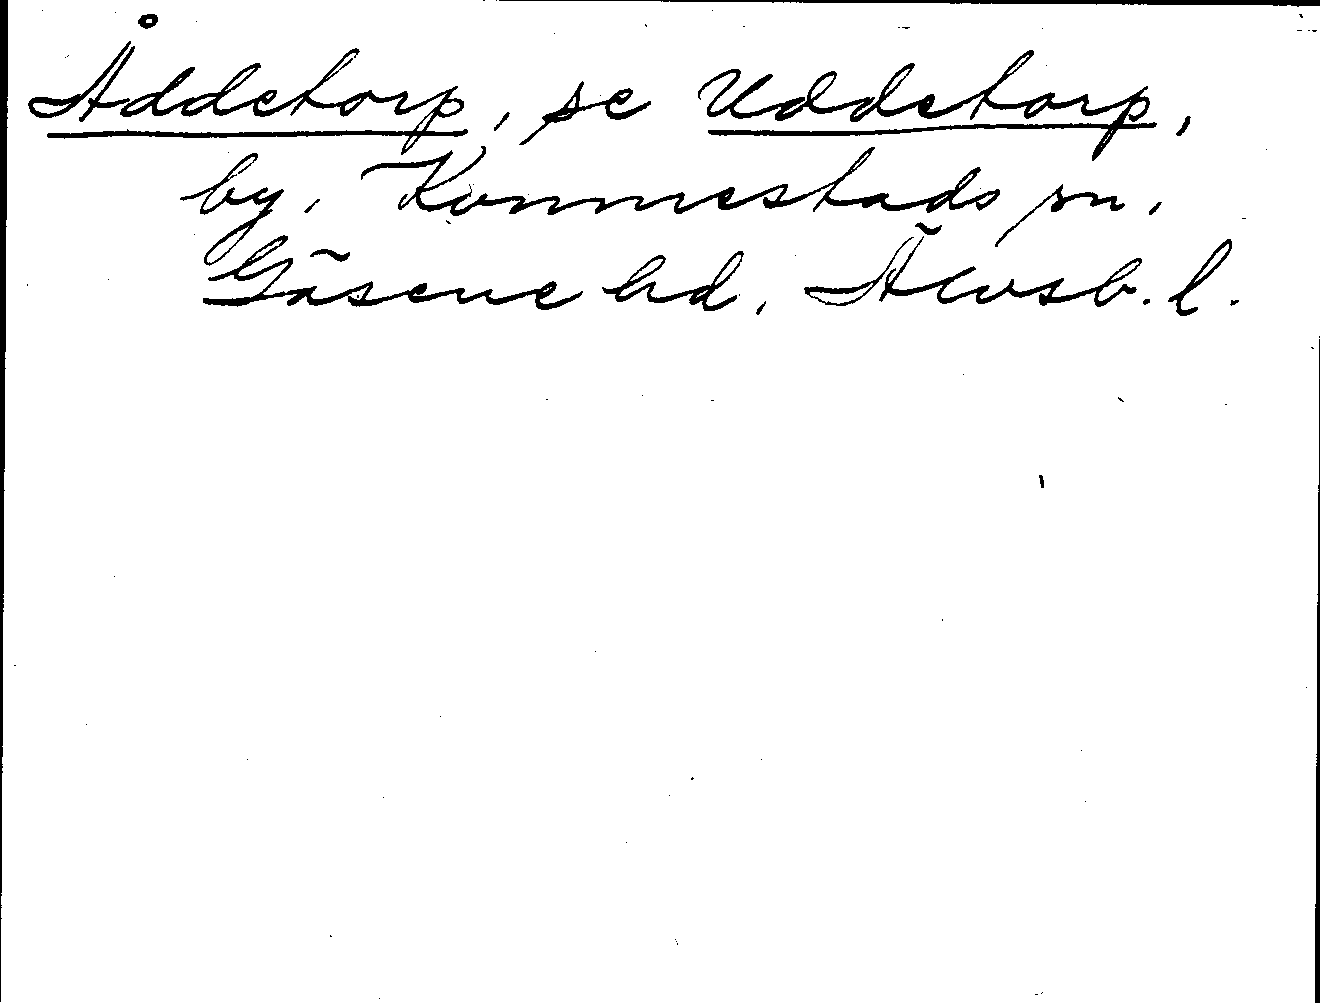 Åddetorp, se Uddetorp,
by, Kvinnestads sn,
Gäsene hd, Älvsb. l.